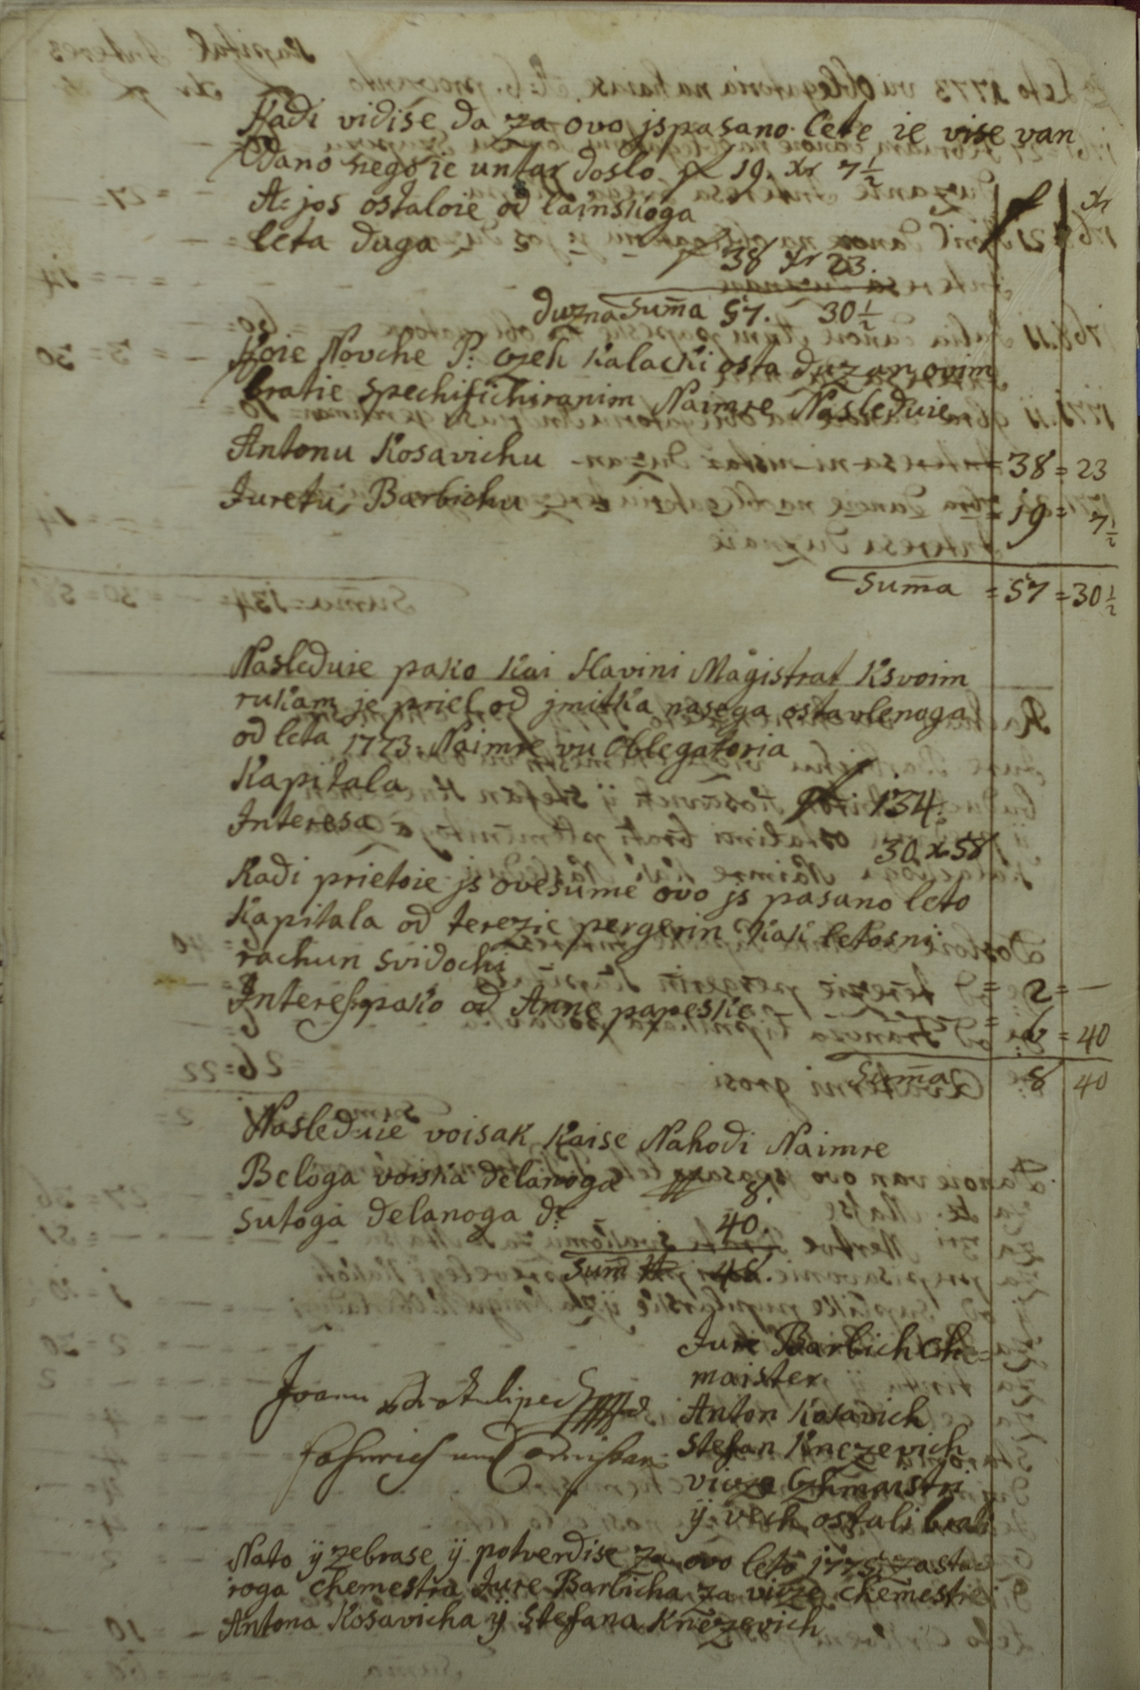 f xr
Kadi vidise da za ovo jspasano lete ie vise van
Dano nego ie untar doslo f 19. xr 7½
A: jos ostaloie od lainskoga
leta duga f 38 xr 23.
duzna Suma 57. 30½
Koie Novche P: czeh Kalacki osta duzan ovim
bratie spechifichiranim Naimre Nasleduie
Antonu Kosavichu = 38 = 23
Juretu Barbichu = 19 = 7½
Suma = 57 = 30½
Nasleduie pako Kai Slavini Magistrat K svoim
rukam je priel od jmitka nasega ostavlenoga
od leta 1773. Naimre vu Oblegatoria
Kapitala f 134:
Interesa 30 x 58
Kadi prietoie js ovesume ovo js pasano leto
Kapitala od terezie pergerin Kak letosni
rachun svidochi = 2 = —
Interes pako od Anne papeske = 6 = 40
Suma 8 40
Nasleduie voisak Kaise Nahodi Naimre
Beloga voiska delanoga 8.
sutoga delanoga d° 40.
Sum 48.
Jure Barbich Ch=
maister
Anton Kosavich
Stefan Knezevich
vicze Czhmaistri
ÿ vech ostali brati
Joann
Nato ÿ zebrase ÿ potverdise za ovo leto 1775 za sta=
roga chemestra Jure Barbicha za vicze chemestre
Antona Kosavicha ÿ Stefana Knezevich